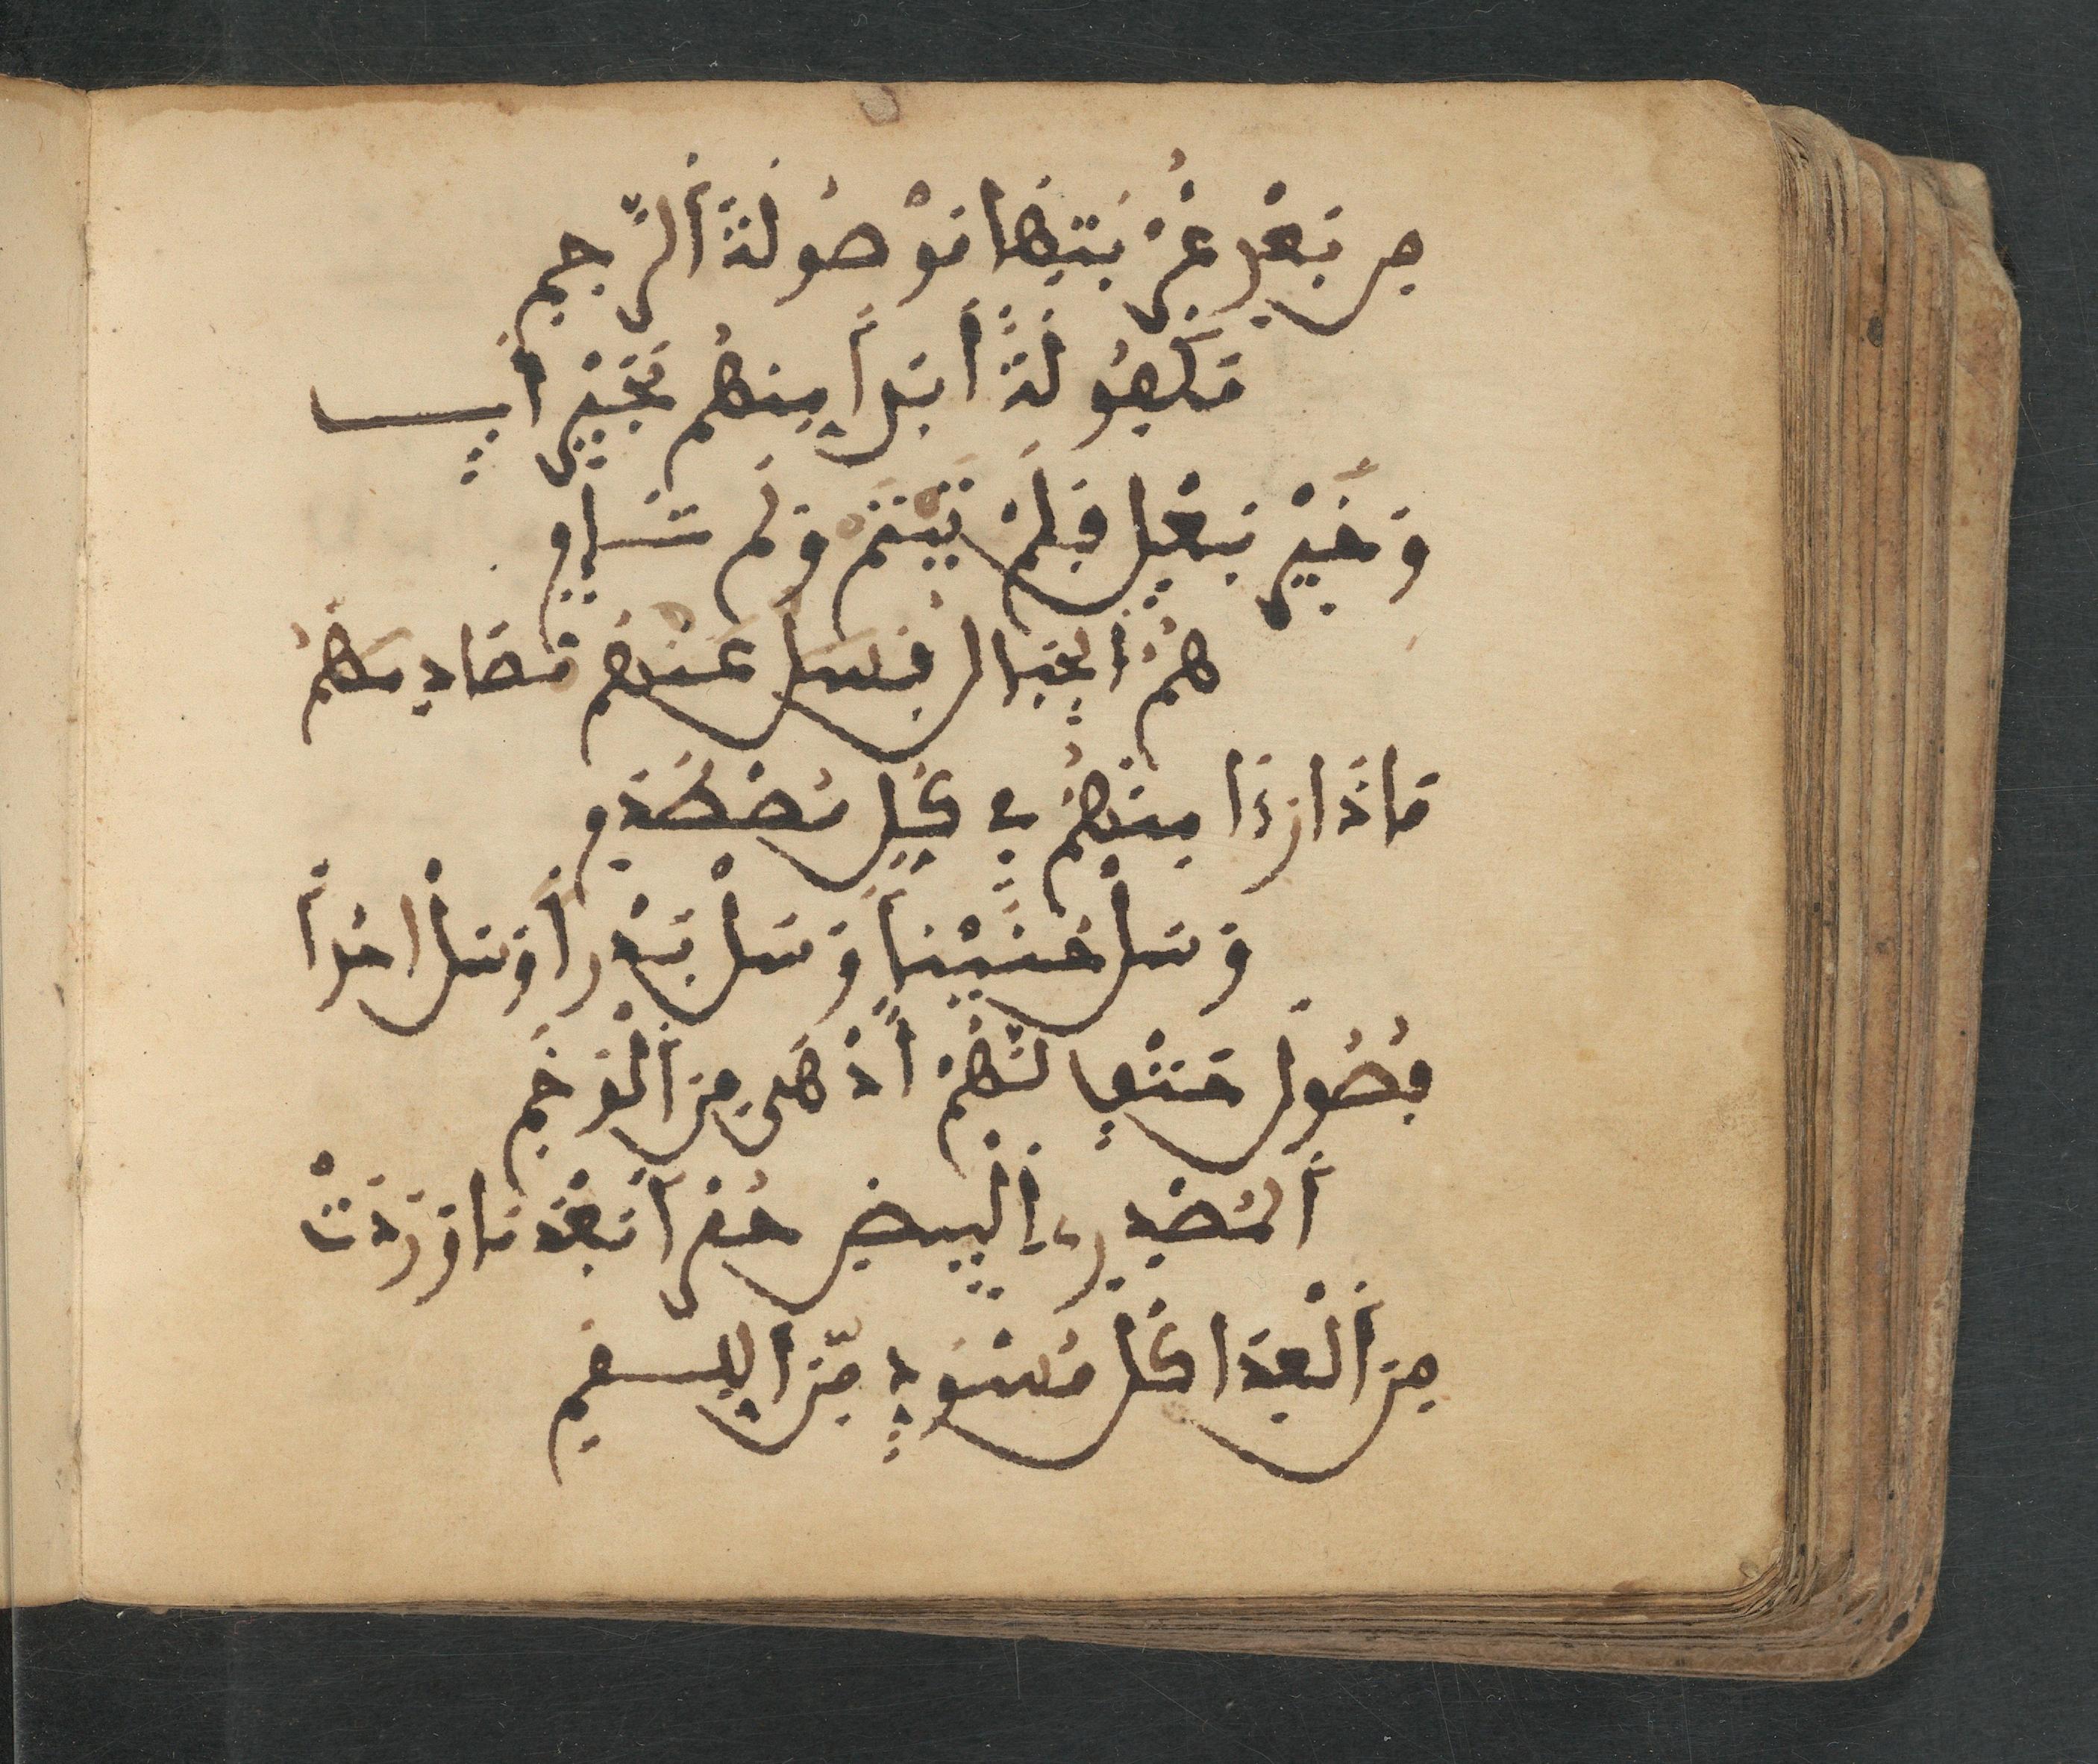 مِن بَعْدِ غُرْبَتِهَا مَوْصُولَةَ ألرَّحِمِ
مَكْفُولَةً أَبَداً مِنهُم بِخَيْرِ أَبٍ
وَخَيْرِ بَعْلٍ فَلَمْ تَيْتَمْ وَلَم تَئِمِ
هُمُ الجِبَالُ فَسَلْ عَنْهُم مُصَادِمَهُمْ
مَاذَا رَءَا مِنْهُمُ فِي كُلِّ مُصْطَدَمِ
وَسَلْ حُنَيْناً وَسَلْ بَدْراً وَسَلْ احُداً
فُصُولُ حَتْفٍ لَهُمْ أَدْهَى مِنَ ألْوَخَمِ
ألْمُصْدِرِي ألْبِيضِ حُمْراً بَعْدَ مَا وَرَدَتْ
مِنَ ألْعِدَا كُلَّ مُسْوَدٍّ مِّنَ اللِّمَمِ